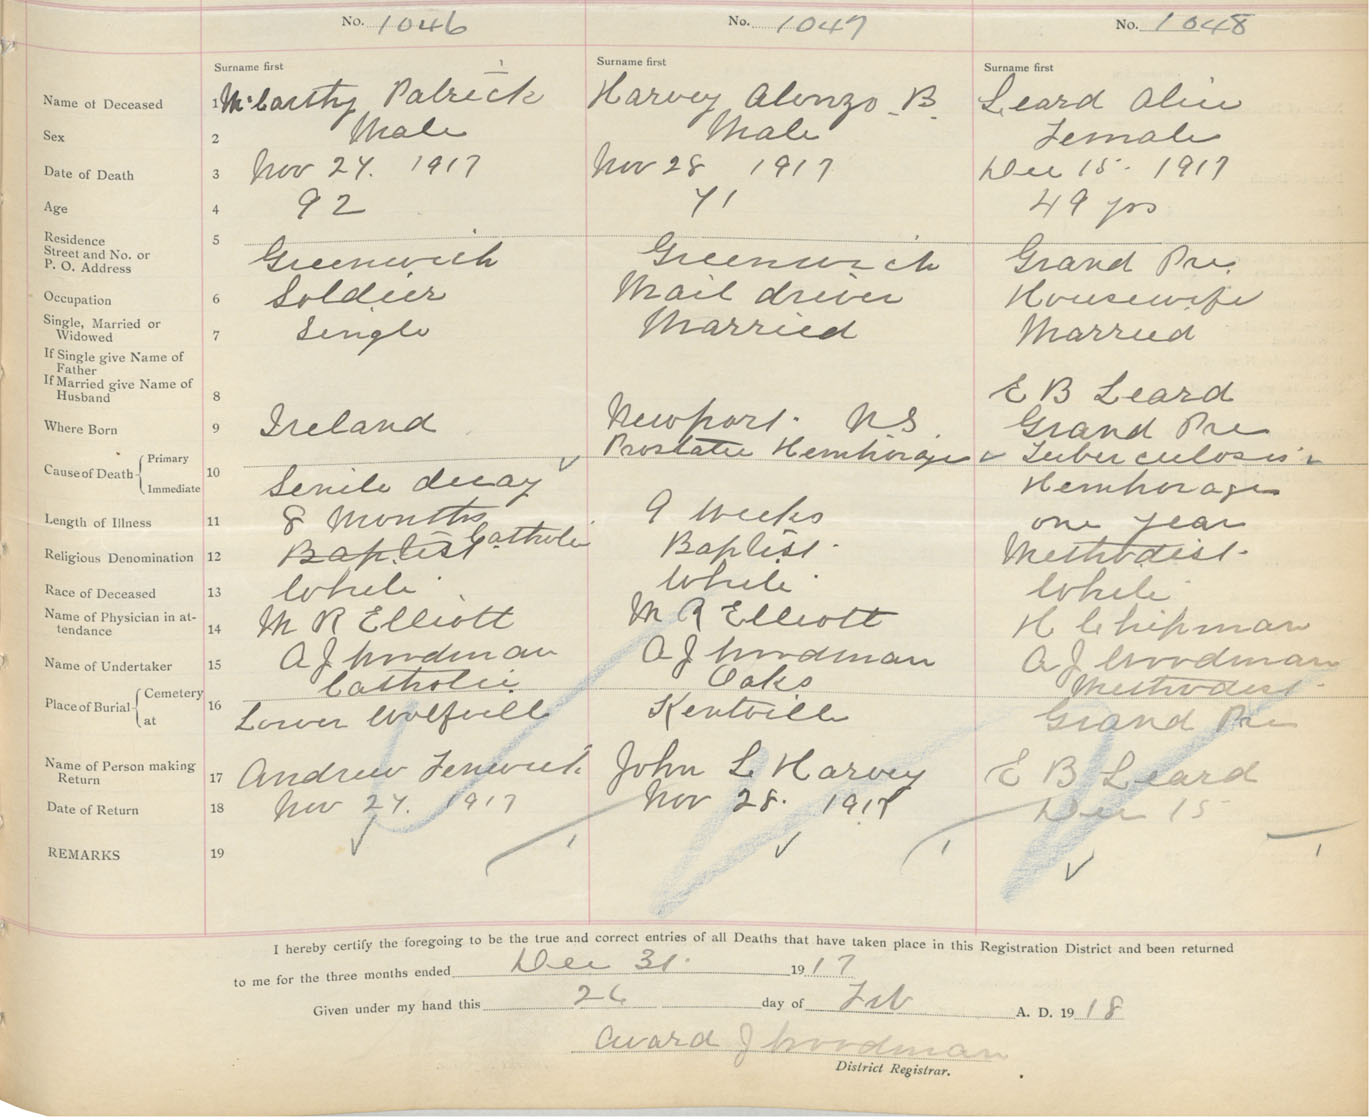 No. 1046 No. 1047 No. 1048
Surname first Surname first Surname first
Name of Deceased 1 McCarthy Patrick Harvey Alonzo B. Leard Alice
Sex 2 Male Male Female
Date of Death 3 Nov 27. 1917 Nov 28 1917 Dec 15. 1917
Age 4 92 71 49 yrs
Residence
Street and No. or
P. O. Address 5 Greenwich Greenwich Grand Pre.
Occupation 6 Soldier Mail driver Housewife
Single, Married or
Widowed 7 Single Married Married
If Single give Name of
Father
If Married give Name of
Husband 8 E B Leard
Where Born 9 Ireland Newport. NS. Grand Pre
Cause of Death Primary Prostatic Hemhorage Tuberculosis
Immediate 10 Senile decay Hemhorage
Length of Illness 11 8 Months 9 Weeks one year
Religious Denomination 12 Baptist Catholic Baptist. Methodist.
Race of Deceased 13 White White White
Name of Physician in at-
tendance 14 M R Elliott M R Elliott H Chipman
Name of Undertaker 15 A J Woodman A J Woodman A J Woodman
Place of Burial Cemetery Catholic Oaks Methodist.
at 16 Lower Wolfville Kentville Grand Pre
Name of Person making
Return 17 Andrew Fenwick John L Harvey E B Leard
Date of Return 18 Nov 27. 1917 Nov 28. 1917 Dec 15
REMARKS 19
I hereby certify the foregoing to be the true and correct entries of all Deaths that have taken place in this Registration District and been returned
to me for the three months ended Dec 31. 1917
Given under my hand this 26 day of Feb A. D. 1918
Award J Woodman
District Registrar.